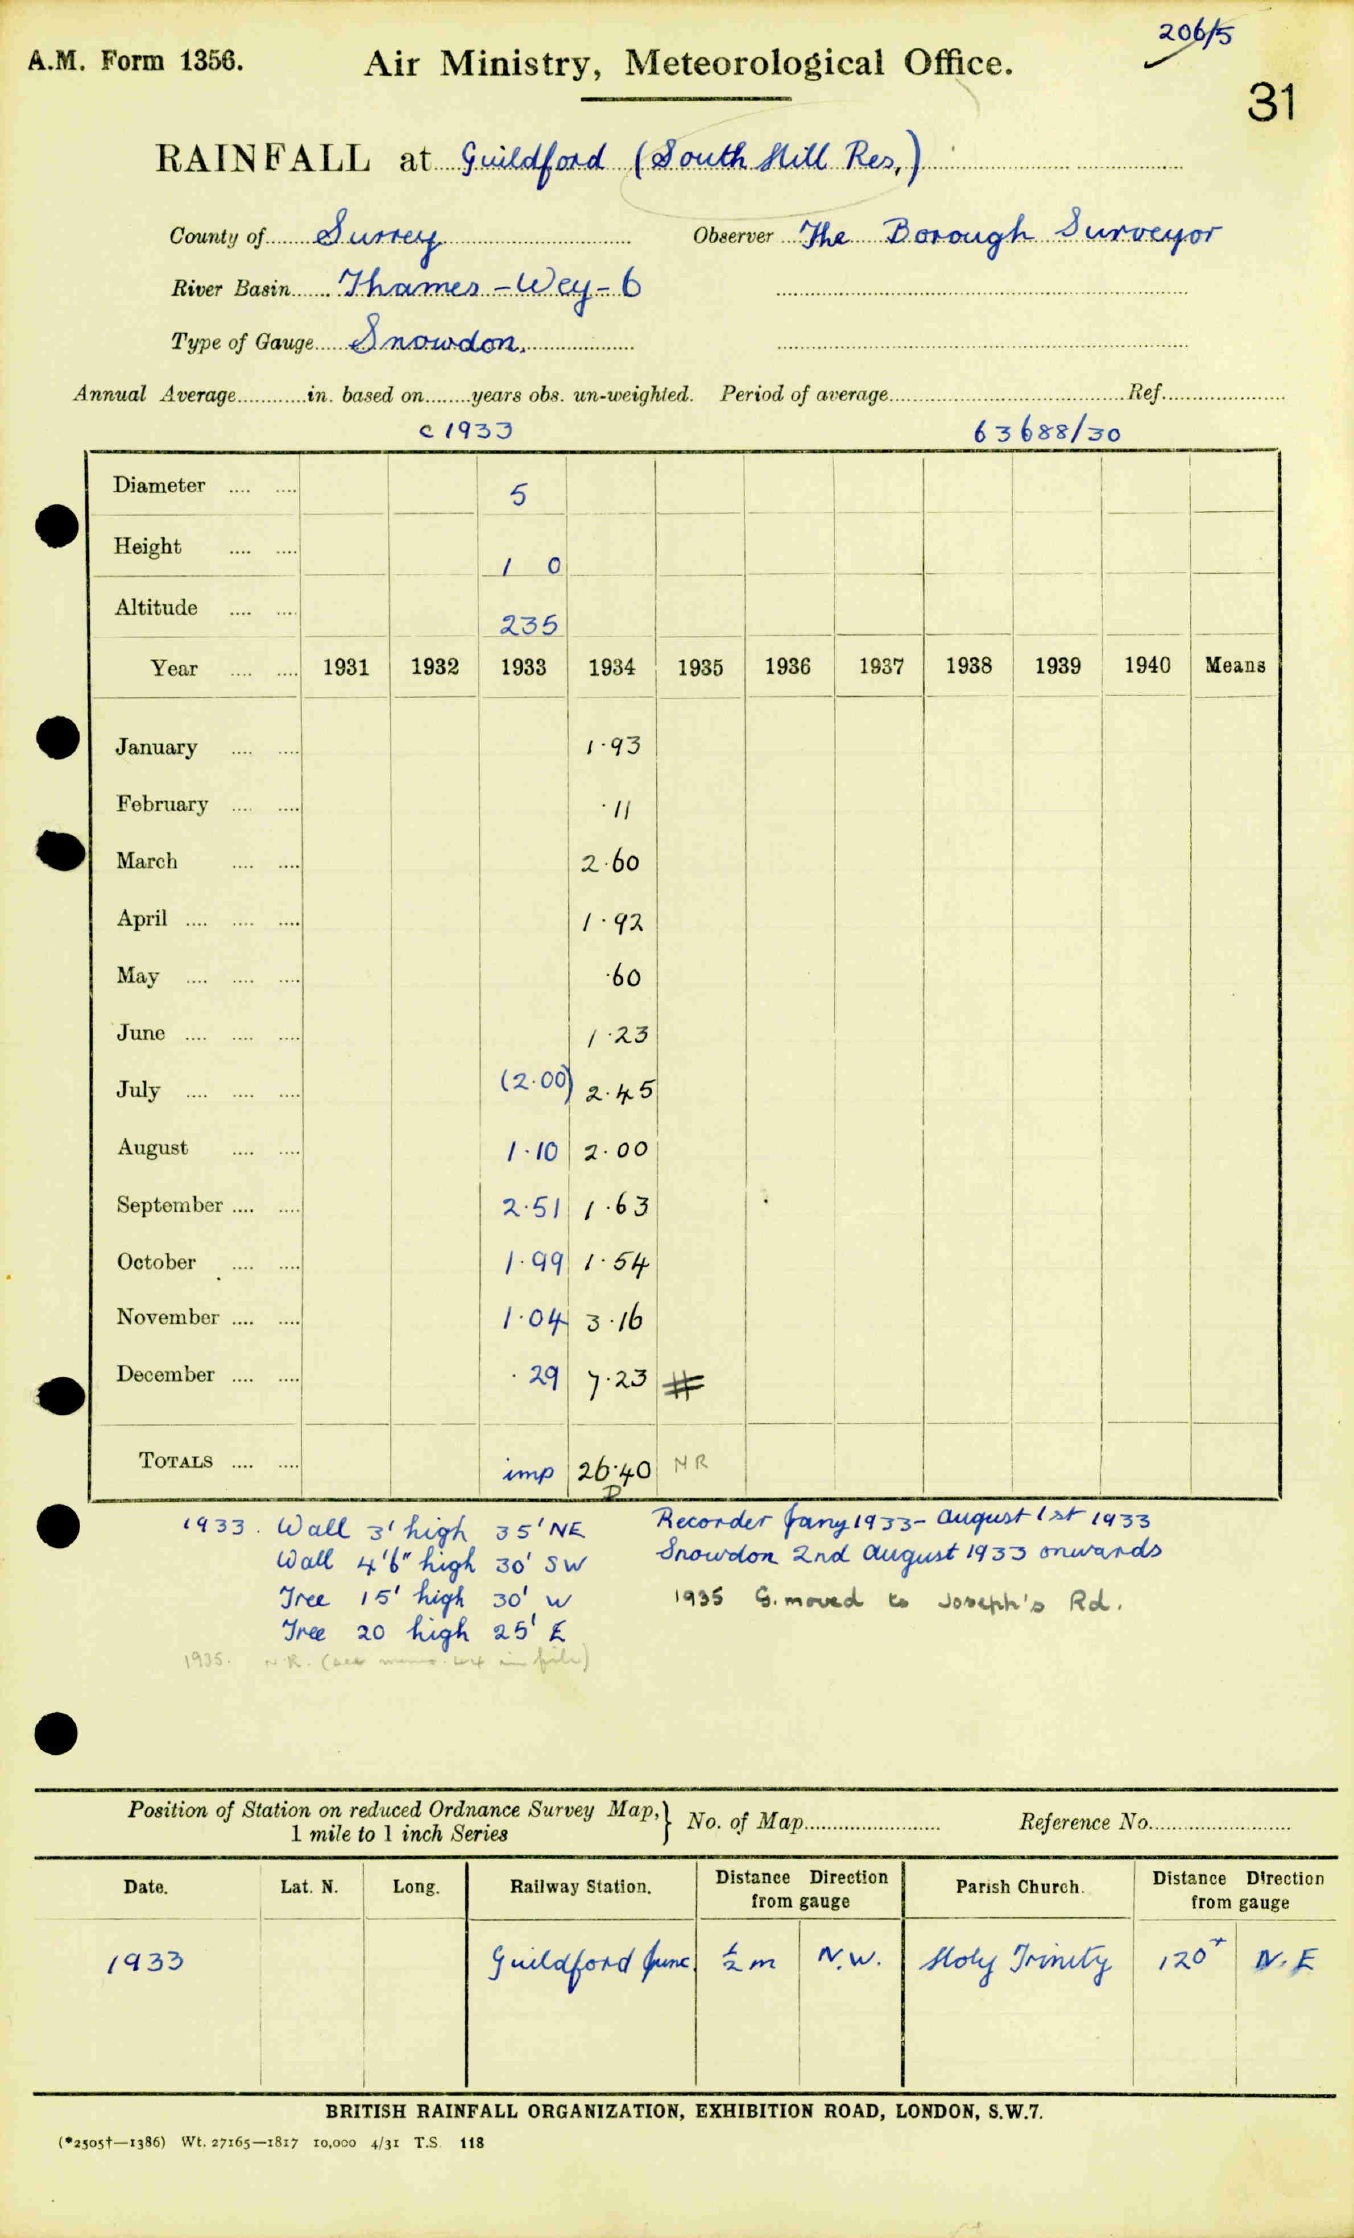 206/5
A.M. Form 1356. Air Ministry, Meteorological Office.
31
RAINFALL at Guildford (South Hill Res.)
County of Surrey Observer The Borough Surveyor
River Basin Thames-Wey-6
Type of Gauge Snowdon.
Annual Average in. based on years obs. un-weighted. Period of average Ref.
c 1933 63688/30
Diameter 5
Height 1 0
Altitude 235
Year 1931 1932 1933 1934 1935 1936 1937 1938 1939 1940 Means
January 1.93
February .11
March 2.60
April 1.92
May .60
June 1.23
July (2.00) 2.45
August 1.10 2.00
September 2.51 1.63
October 1.99 1.54
November 1.04 3.16
December .29 7.23 #
TOTALS imp 26.40 NR
P
1933. Wall 3' high 35' NE Recorder Jany 1933 - August 1st 1933
Wall 4'6" high 30' SW Snowdon 2nd August 1933 onwards
Tree 15' high 30' W 1935 G. moved to Joseph's Rd.
Tree 20 high 25' E
1935. N.R. (see memo. 44 in file)
Position of Station on reduced Ordnance Survey Map, } No. of Map Reference No.
1 mile to 1 inch Series
Date. Lat. N. Long. Railway Station. Distance Direction from gauge Parish Church. Distance Direction from gauge
1933 Guildford Junc. ½ m N.W. Holy Trinity 120+ N.E
BRITISH RAINFALL ORGANIZATION, EXHIBITION ROAD, LONDON, S.W.7.
(*2505†—1386) Wt. 27165—1817 10,000 4/31 T.S. 118